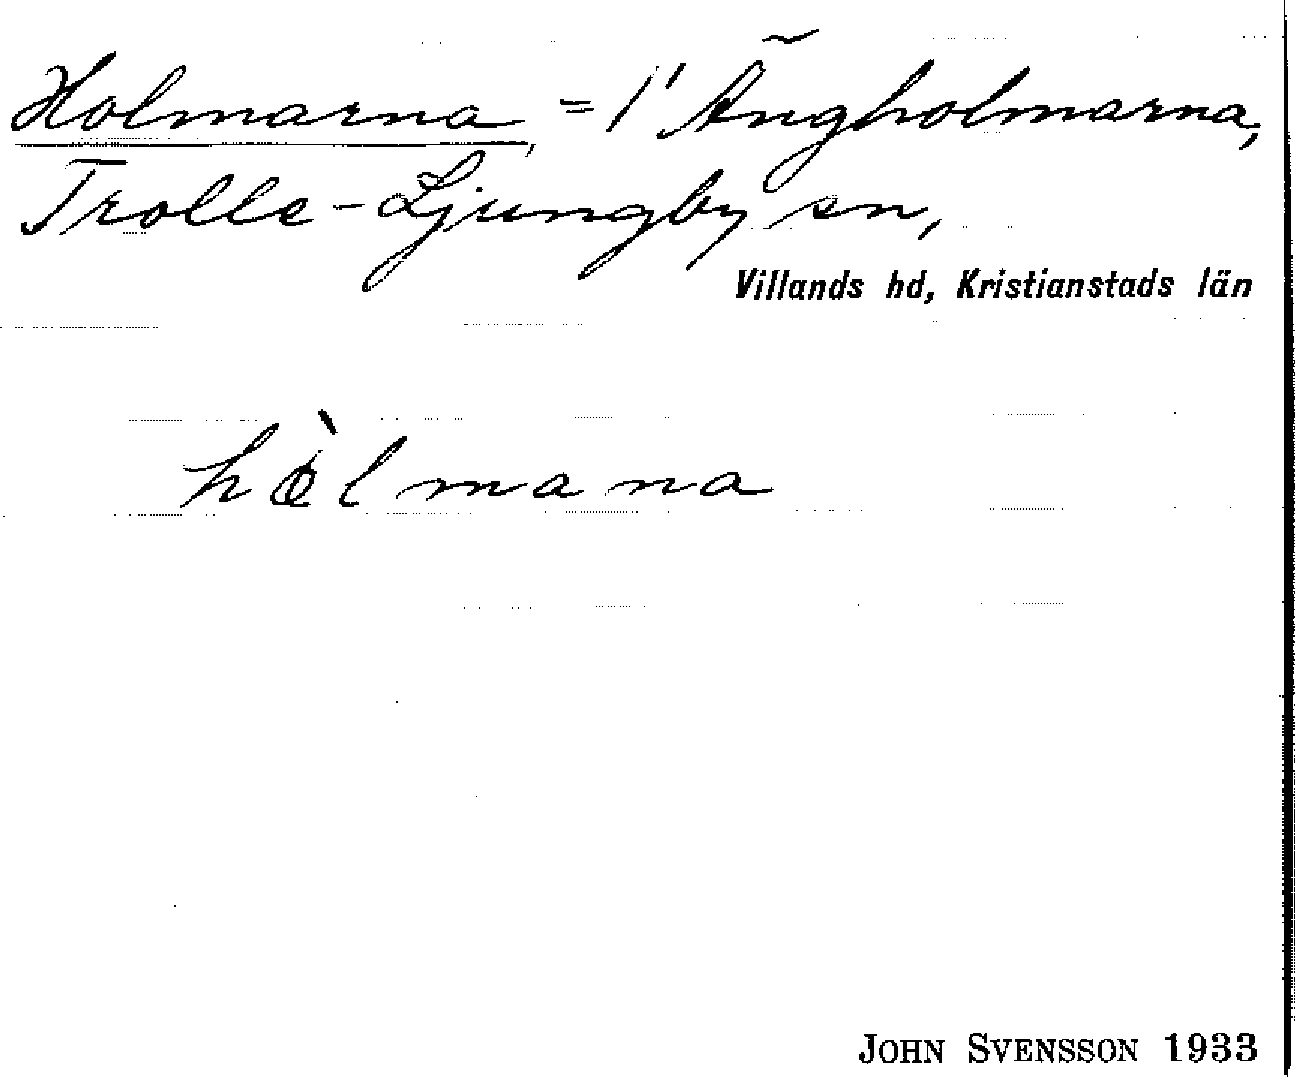 Holmarna, = 1' Ängholmarna,
Trolle-Ljungby sn,
Villands hd, Kristianstads län
hòlmana
JOHN SVENSSON 1933